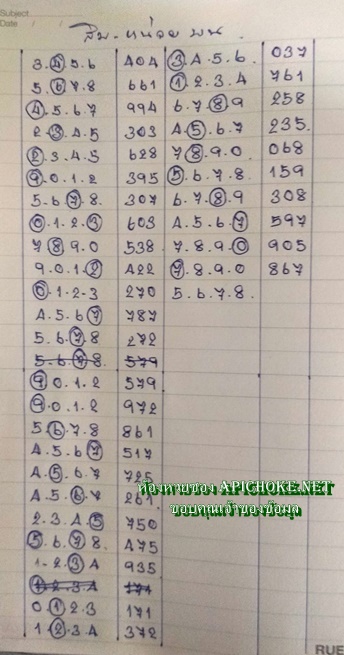 Subject
Date / /
สิบ-หน่วย บน
3.4.5.6 404
5.6.7.8 661
4.5.6.7 994
2.3.4.5 303
2.3.4.5 628
9.0.1.2 395
5.6.7.8 307
0.1.2.3 603
7.8.9.0 538
9.0.1.2 422
0.1.2.3 270
4.5.6.7 787
5.6.7.8 272
5.6.7.8 579
9.0.1.2 579
9.0.1.2 972
5.6.7.8 861
4.5.6.7 517
4.5.6.7 725
4.5.6.7 261
2.3.4.5 750
5.6.7.8 475
1.2.3.4 935
1.2.3.4 171
0.1.2.3 171
1.2.3.4 372
3.4.5.6 037
1.2.3.4 761
6.7.8.9 258
4.5.6.7 235
7.8.9.0 068
5.6.7.8 159
6.7.8.9 308
4.5.6.7 597
7.8.9.0 905
7.8.9.0 867
5.6.7.8
ห้องหวยของ APICHOKE.NET
ขอบคุณเจ้าของข้อมูล
RUE